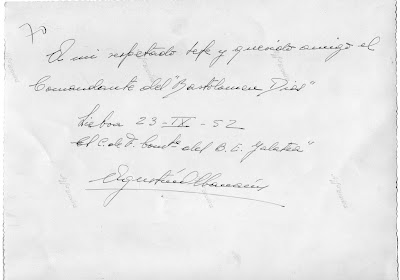 70
A mi respetado Jefe y querido amigo el
Comandante del "Bartolomeu Dias"
Lisboa 23-IX-52
El C. de F. Comte del B. E. Galatea"
Agustín